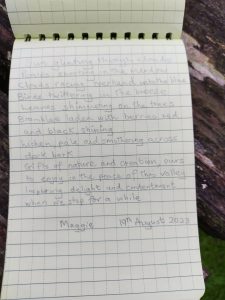 Sun glinting through clouds
Leaves
Clouds racing overhead
Birds twittering in the hedge
Leaves shimmering on the trees
Brambles laden with berries red
and black shining
Lichen pale and smothering across
dark bark
Gifts of nature and creation, ours
to enjoy in the peace of this valley
inspiring delight and contentment
when we stop for a while
Maggie 19th August 2023